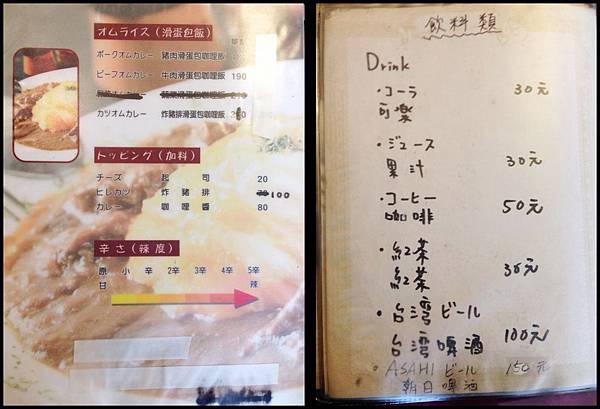 オムライス(滑蛋包飯)
ポークオムカレー 豬肉滑蛋包咖哩飯
ビーフオムカレー 牛肉滑蛋包咖哩飯 190
カツオムカレー 炸豬排滑蛋包咖哩飯
トッピング(加料)
チーズ 起司 20
ヒレカツ 炸豬排 100
カレー 咖哩醬 80
辛さ(辣度)
原 小辛 2辛 3辛 4辛 5辛
甘 辣
飲料類
Drink
・コーラ 30元
可樂
・ジュース
果汁 30元
・コーヒー 50元
咖啡
・紅茶
紅茶 30元
・台湾ビール
台湾啤酒 100元
・ASAHIビール 150元
朝日啤酒